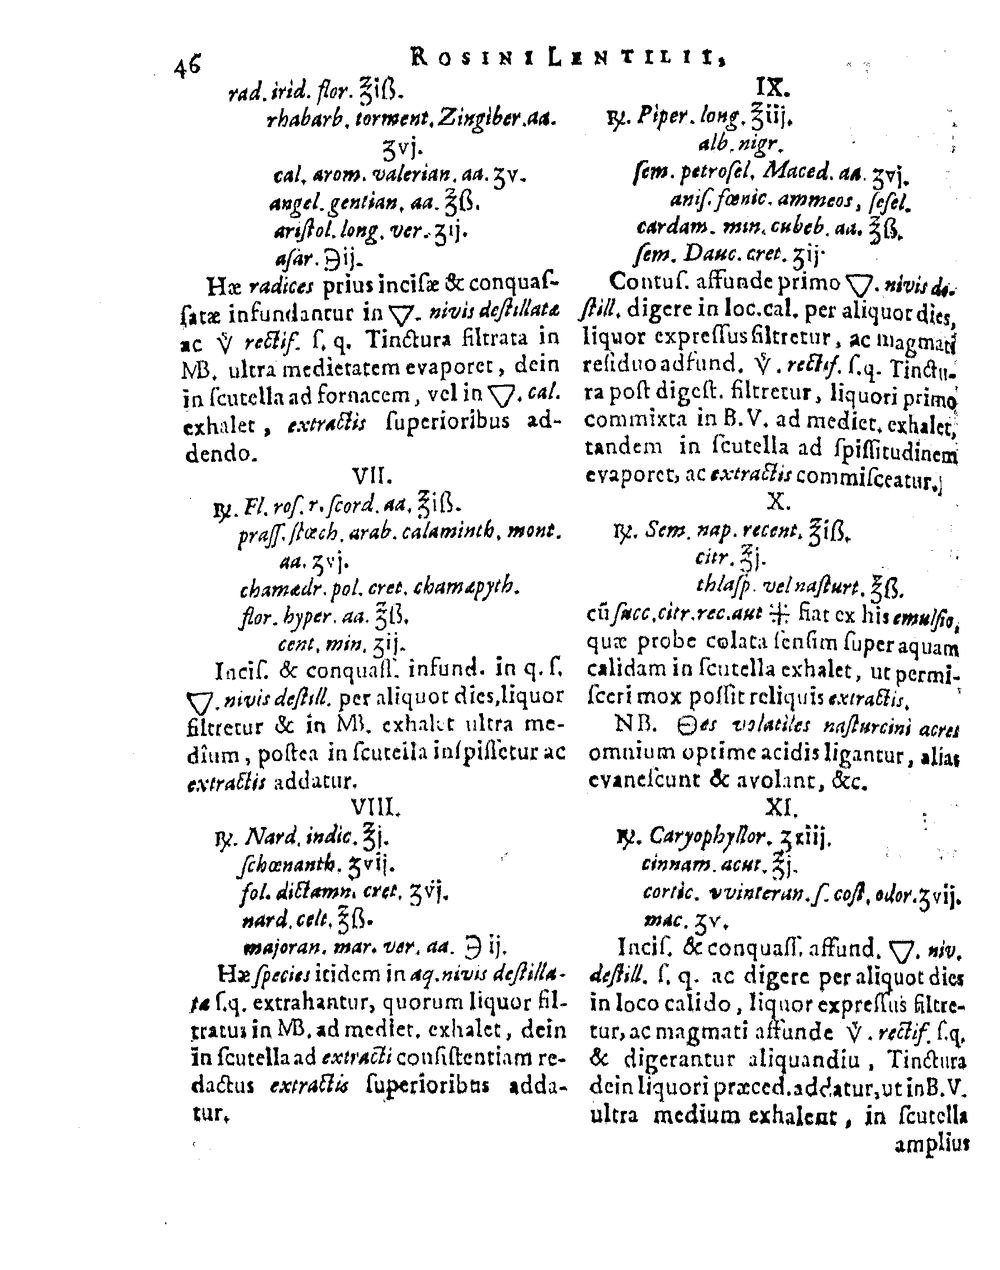 46
ROSINI LENTILII,
rad. irid. flor. ℥iß.
rhabarb. torment. Zingiber. aa.
ʒvj.
cal. arom. valerian. aa. ʒv.
angel. gentian. aa. ℥ß.
ariſtol. long. ver. ʒij.
aſar. ℈ij.
Hæ radices prius inciſæ & conquaſ-
ſatæ infundantur in 🜄. nivis deſtillatæ
ac V̊ rectif. ſ. q. Tinctura filtrata in
MB. ultra medietatem evaporet, dein
in ſcutella ad fornacem, vel in 🜄. cal.
exhalet, extractis ſuperioribus ad-
dendo.
VII.
℞. Fl. roſ. r. ſcord. aa. ℥iß.
praſſ. ſtœch. arab. calaminth. mont.
aa. ʒvj.
chamædr. pol. cret. chamæpyth.
flor. hyper. aa. ℥ß.
cent. min. ʒij.
Inciſ. & conquaſſ. infund. in q. ſ.
🜄. nivis deſtill. per aliquot dies, liquor
filtretur & in MB. exhalet ultra me-
dium, poſtea in ſcutella inſpiſſetur ac
extractis addatur.
VIII.
℞. Nard. indic. ℥j.
ſchœnanth. ʒvij.
fol. dictamn. cret. ʒvj.
nard. celt. ℥ß.
majoran. mar. ver. aa. ℈ ij.
Hæ ſpecies itidem in aq. nivis deſtilla-
ta ſ.q. extrahantur, quorum liquor fil-
tratus in MB. ad mediet. exhalet, dein
in ſcutella ad extracti conſiſtentiam re-
dactus extractis ſuperioribus adda-
tur.
IX.
℞. Piper. long. ℥iij.
alb. nigr.
ſem. petroſel. Maced. aa. ʒvj.
aniſ. fœnic. ammeos, ſeſel.
cardam. min. cubeb. aa. ℥ß.
ſem. Dauc. cret. ʒij.
Contuſ. affunde primo 🜄. nivis de-
ſtill. digere in loc. cal. per aliquot dies,
liquor expreſſus filtretur, ac magmati
reſiduo adfund. V̊. rectif. ſ.q. Tinctu-
ra poſt digeſt. filtretur, liquori primo
commixta in B.V. ad mediet. exhalet,
tandem in ſcutella ad ſpiſſitudinem
evaporet, ac extractis commiſceatur.
X.
℞. Sem. nap. recent. ℥iß.
citr. ℥j.
thlaſp. vel naſturt. ℥ß.
cũ ſucc. citr. rec. aut 🜊 fiat ex his emulſio,
quæ probe colata ſenſim ſuper aquam
calidam in ſcutella exhalet, ut permi-
ſceri mox poſſit reliquis extractis.
NB. 🜔es volatiles naſturcini acres
omnium optime acidis ligantur, alias
evaneſcunt & avolant, &c.
XI.
℞. Caryophyllor. ʒxiij.
cinnam. acut. ℥j.
cortic. vvinteran. ſ. coſt. odor. ʒvij.
mac. ʒv.
Inciſ. & conquaſſ. affund. 🜄. niv.
deſtill. ſ. q. ac digere per aliquot dies
in loco calido, liquor expreſſus filtre-
tur, ac magmati affunde V̊. rectif. ſ.q.
& digerantur aliquandiu, Tinctura
dein liquori præced. addatur, ut in B.V.
ultra medium exhalent, in ſcutella
amplius